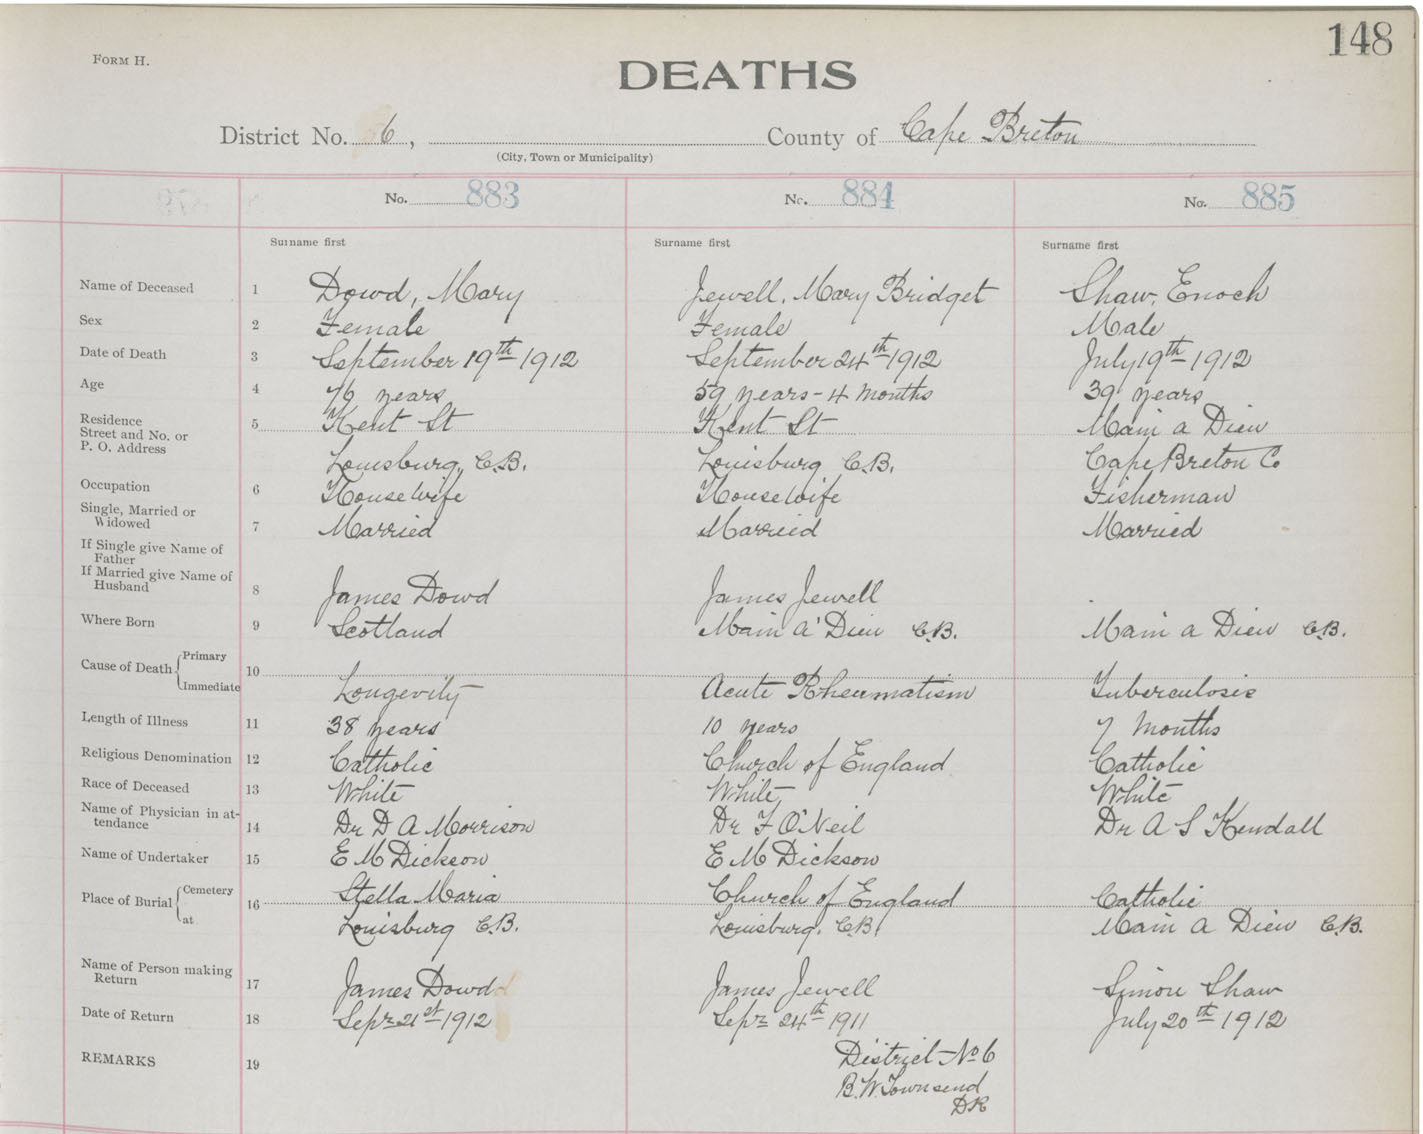 148
FORM H.
DEATHS
District No. 6, County of Cape Breton
(City, Town or Municipality)
No. 883 No. 884 No. 885
Surname first Surname first Surname first
Name of Deceased 1 Dowd, Mary Jewell, Mary Bridget Shaw, Enoch
Sex 2 Female Female Male
Date of Death 3 September 19th 1912 September 24th 1912 July 19th 1912
Age 4 76 years 59 years - 4 months 39 years
Residence
Street and No. or
P. O. Address
5 Kent St Kent St Main a Dieu
Louisburg, C.B. Louisburg C.B. Cape Breton Co
Occupation 6 Housewife Housewife Fisherman
Single, Married or
Widowed 7 Married Married Married
If Single give Name of
Father
If Married give Name of
Husband 8 James Dowd James Jewell
Where Born 9 Scotland Main A' Dieu C.B. Main a Dieu C.B.
Cause of Death Primary 10
Immediate Longevity Acute Rheumatism Tuberculosis
Length of Illness 11 38 years 10 years 7 months
Religious Denomination 12 Catholic Church of England Catholic
Race of Deceased 13 White White White
Name of Physician in at-
tendance 14 Dr D A Morrison Dr F O'Neil Dr A S Kendall
Name of Undertaker 15 E M Dickson E M Dickson
Place of Burial Cemetery 16 Stella Maria Church of England Catholic
at Louisburg C.B. Louisburg, C.B. Main a Dieu C.B.
Name of Person making
Return 17 James Dowd James Jewell Simon Shaw
Date of Return 18 Sept 21st 1912 Sept 24th 1911 July 20th 1912
REMARKS 19 District No 6
B. W. Townsend
DR